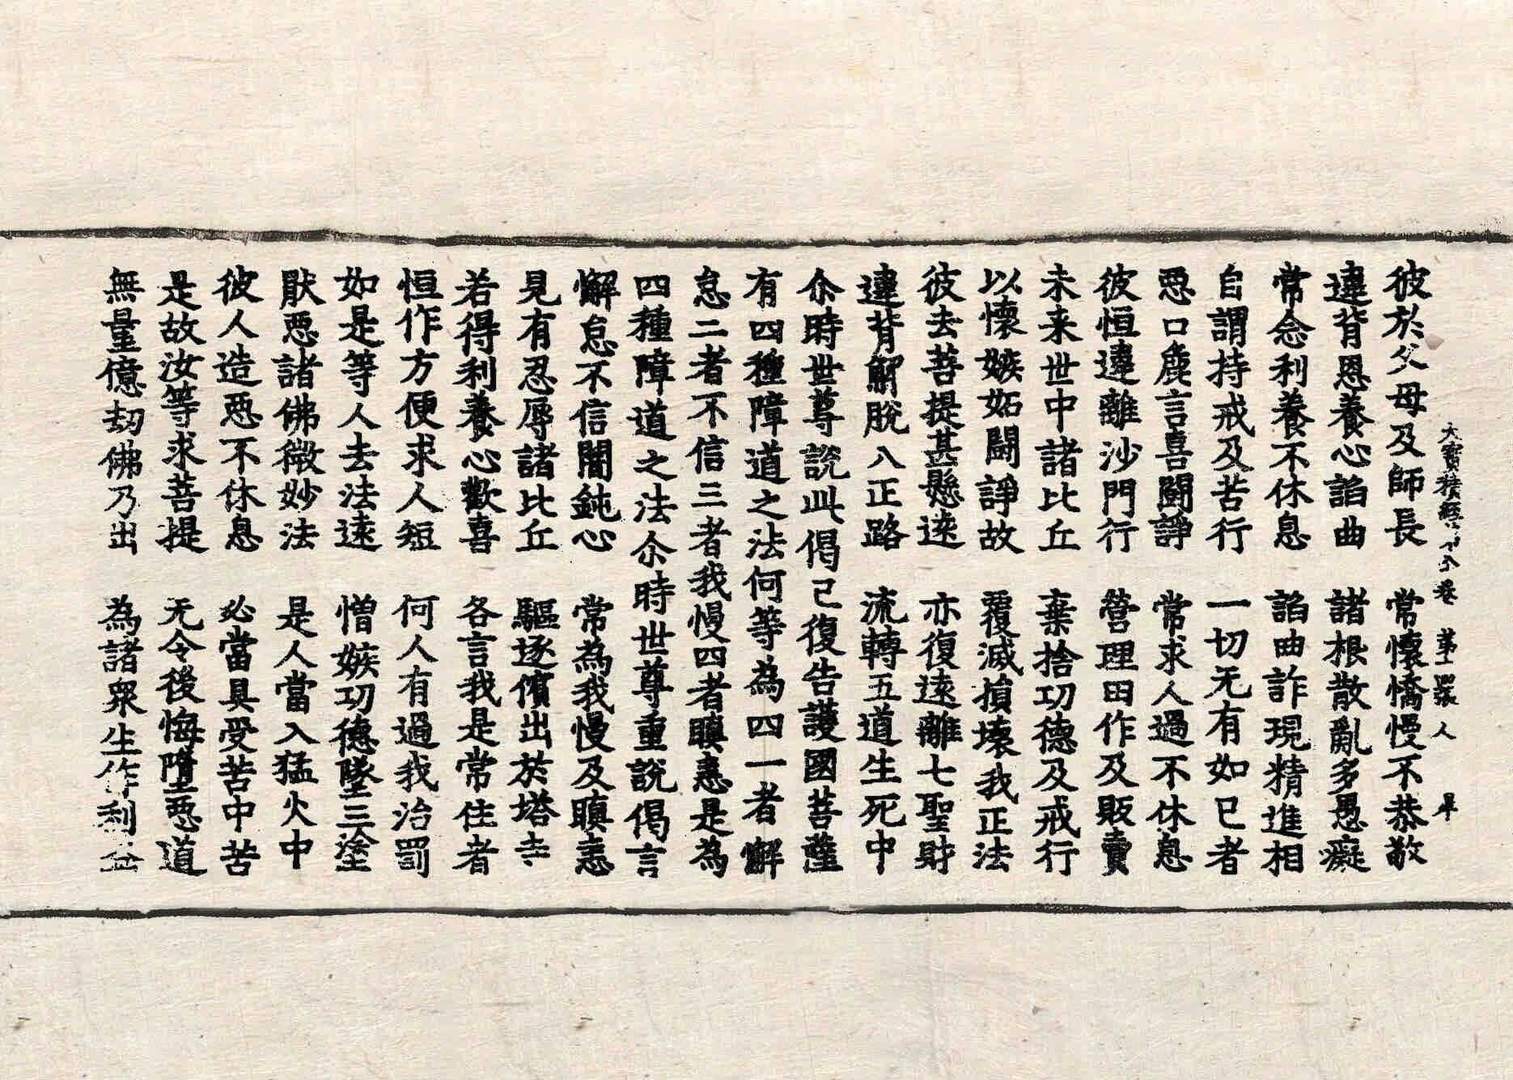 大寶積經 卷 第 張 人
彼於父母及師長 常懷憍慢不恭敬
違背恩養心諂曲 諸根散亂多愚癡
常念利養不休息 諂曲詐現精進相
自謂持戒及苦行 一切无有如已者
惡口麁言喜鬪諍 常求人過不休息
彼恒違離沙門行 營理田作及販賣
未来世中諸比丘 棄捨功德及戒行
以懷嫉妬鬪諍故 覆滅損壞我正法
彼去菩提甚懸遠 亦復遠離七聖財
違背解脫八正路 流轉五道生死中
尒時世尊說此偈已復告護國菩薩
有四種障道之法何等為四一者懈
怠二者不信三者我慢四者瞋恚是為
四種障道之法尒時世尊重說偈言
懈怠不信闇鈍心 常為我慢及瞋恚
見有忍辱諸比丘 驅逐儐出於塔寺
若得利養心歡喜 各言我是常住者
恒作方便求人短 何人有過我治罰
如是等人去法遠 憎嫉功德墜三塗
猒惡諸佛微妙法 是人當入猛火中
彼人造惡不休息 必當具受苦中苦
是故汝等求菩提 无令後悔墮惡道
無量億劫佛乃出 為諸衆生作利益